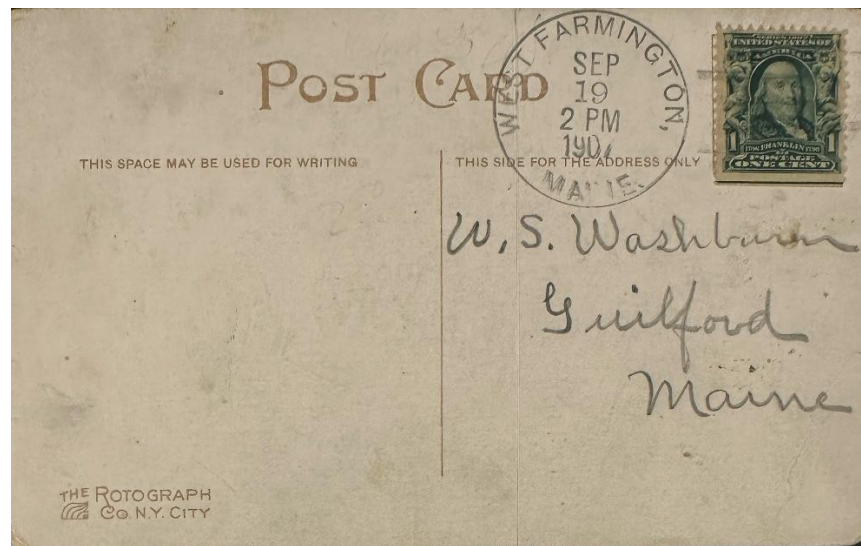 POST CARD
WEST FARMINGTON,
SEP
19
2 PM
MAINE.
UNITED STATES OF
AMERICA
1 FRANKLIN 1
POSTAGE
ONE CENT
THIS SPACE MAY BE USED FOR WRITING
THIS SIDE FOR THE ADDRESS ONLY
W. S. Washburn
Guilford
Maine
THE ROTOGRAPH
CO. N.Y. CITY